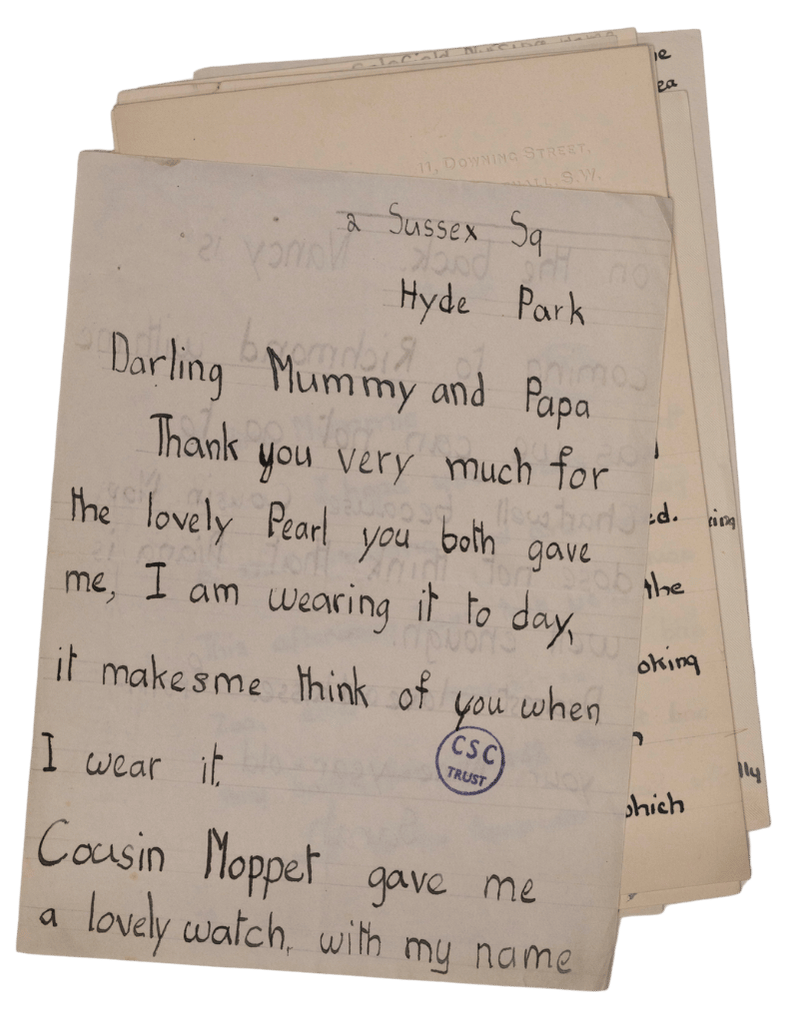 11, DOWNING STREET,
S.W.
2 Sussex Sq
Hyde Park
Darling Mummy and Papa
Thank you very much for
the lovely Pearl you both gave
me, I am wearing it to day,
it makesme think of you when
I wear it.
CSC
TRUST
Cousin Moppet gave me
a lovely watch, with my name
ed.
the
oking
which